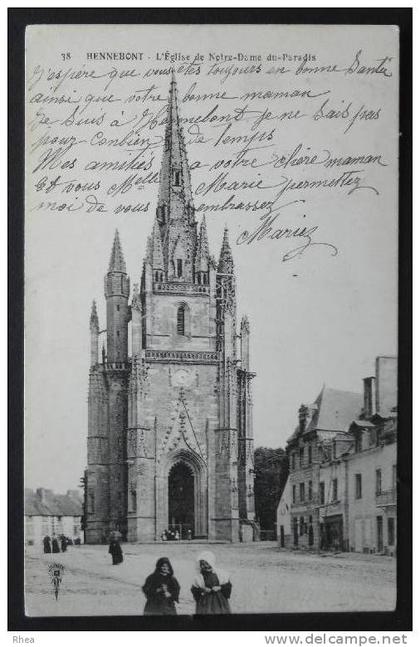 38 HENNEBONT - L'Église de Notre-Dame du-Paradis
J'espère que vous êtes toujours en bonne Santé
ainsi que votre bonne maman
Je Suis à Hennebont je ne Sais pas
pour Combien de temps
Mes amitiés a votre chère maman
Et vous Melle Marie permettez
moi de vous embrassez
Marie
Rhea
http://www.delcampe.net